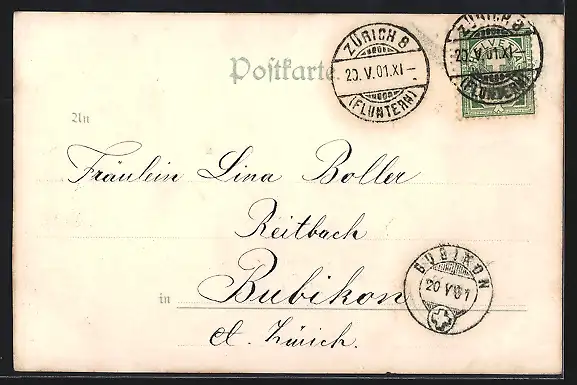 ZÜRICH 8
20.V.01.XI-
(FLUNTERN)
ZÜRICH 8
20.V.01.XI-
(FLUNTERN)
HELVETIA
Postkarte.
An
Fräulein Lina Boller
Reitbach
in Bubikon
Ct. Zürich.
BUBIKON
20 V 01